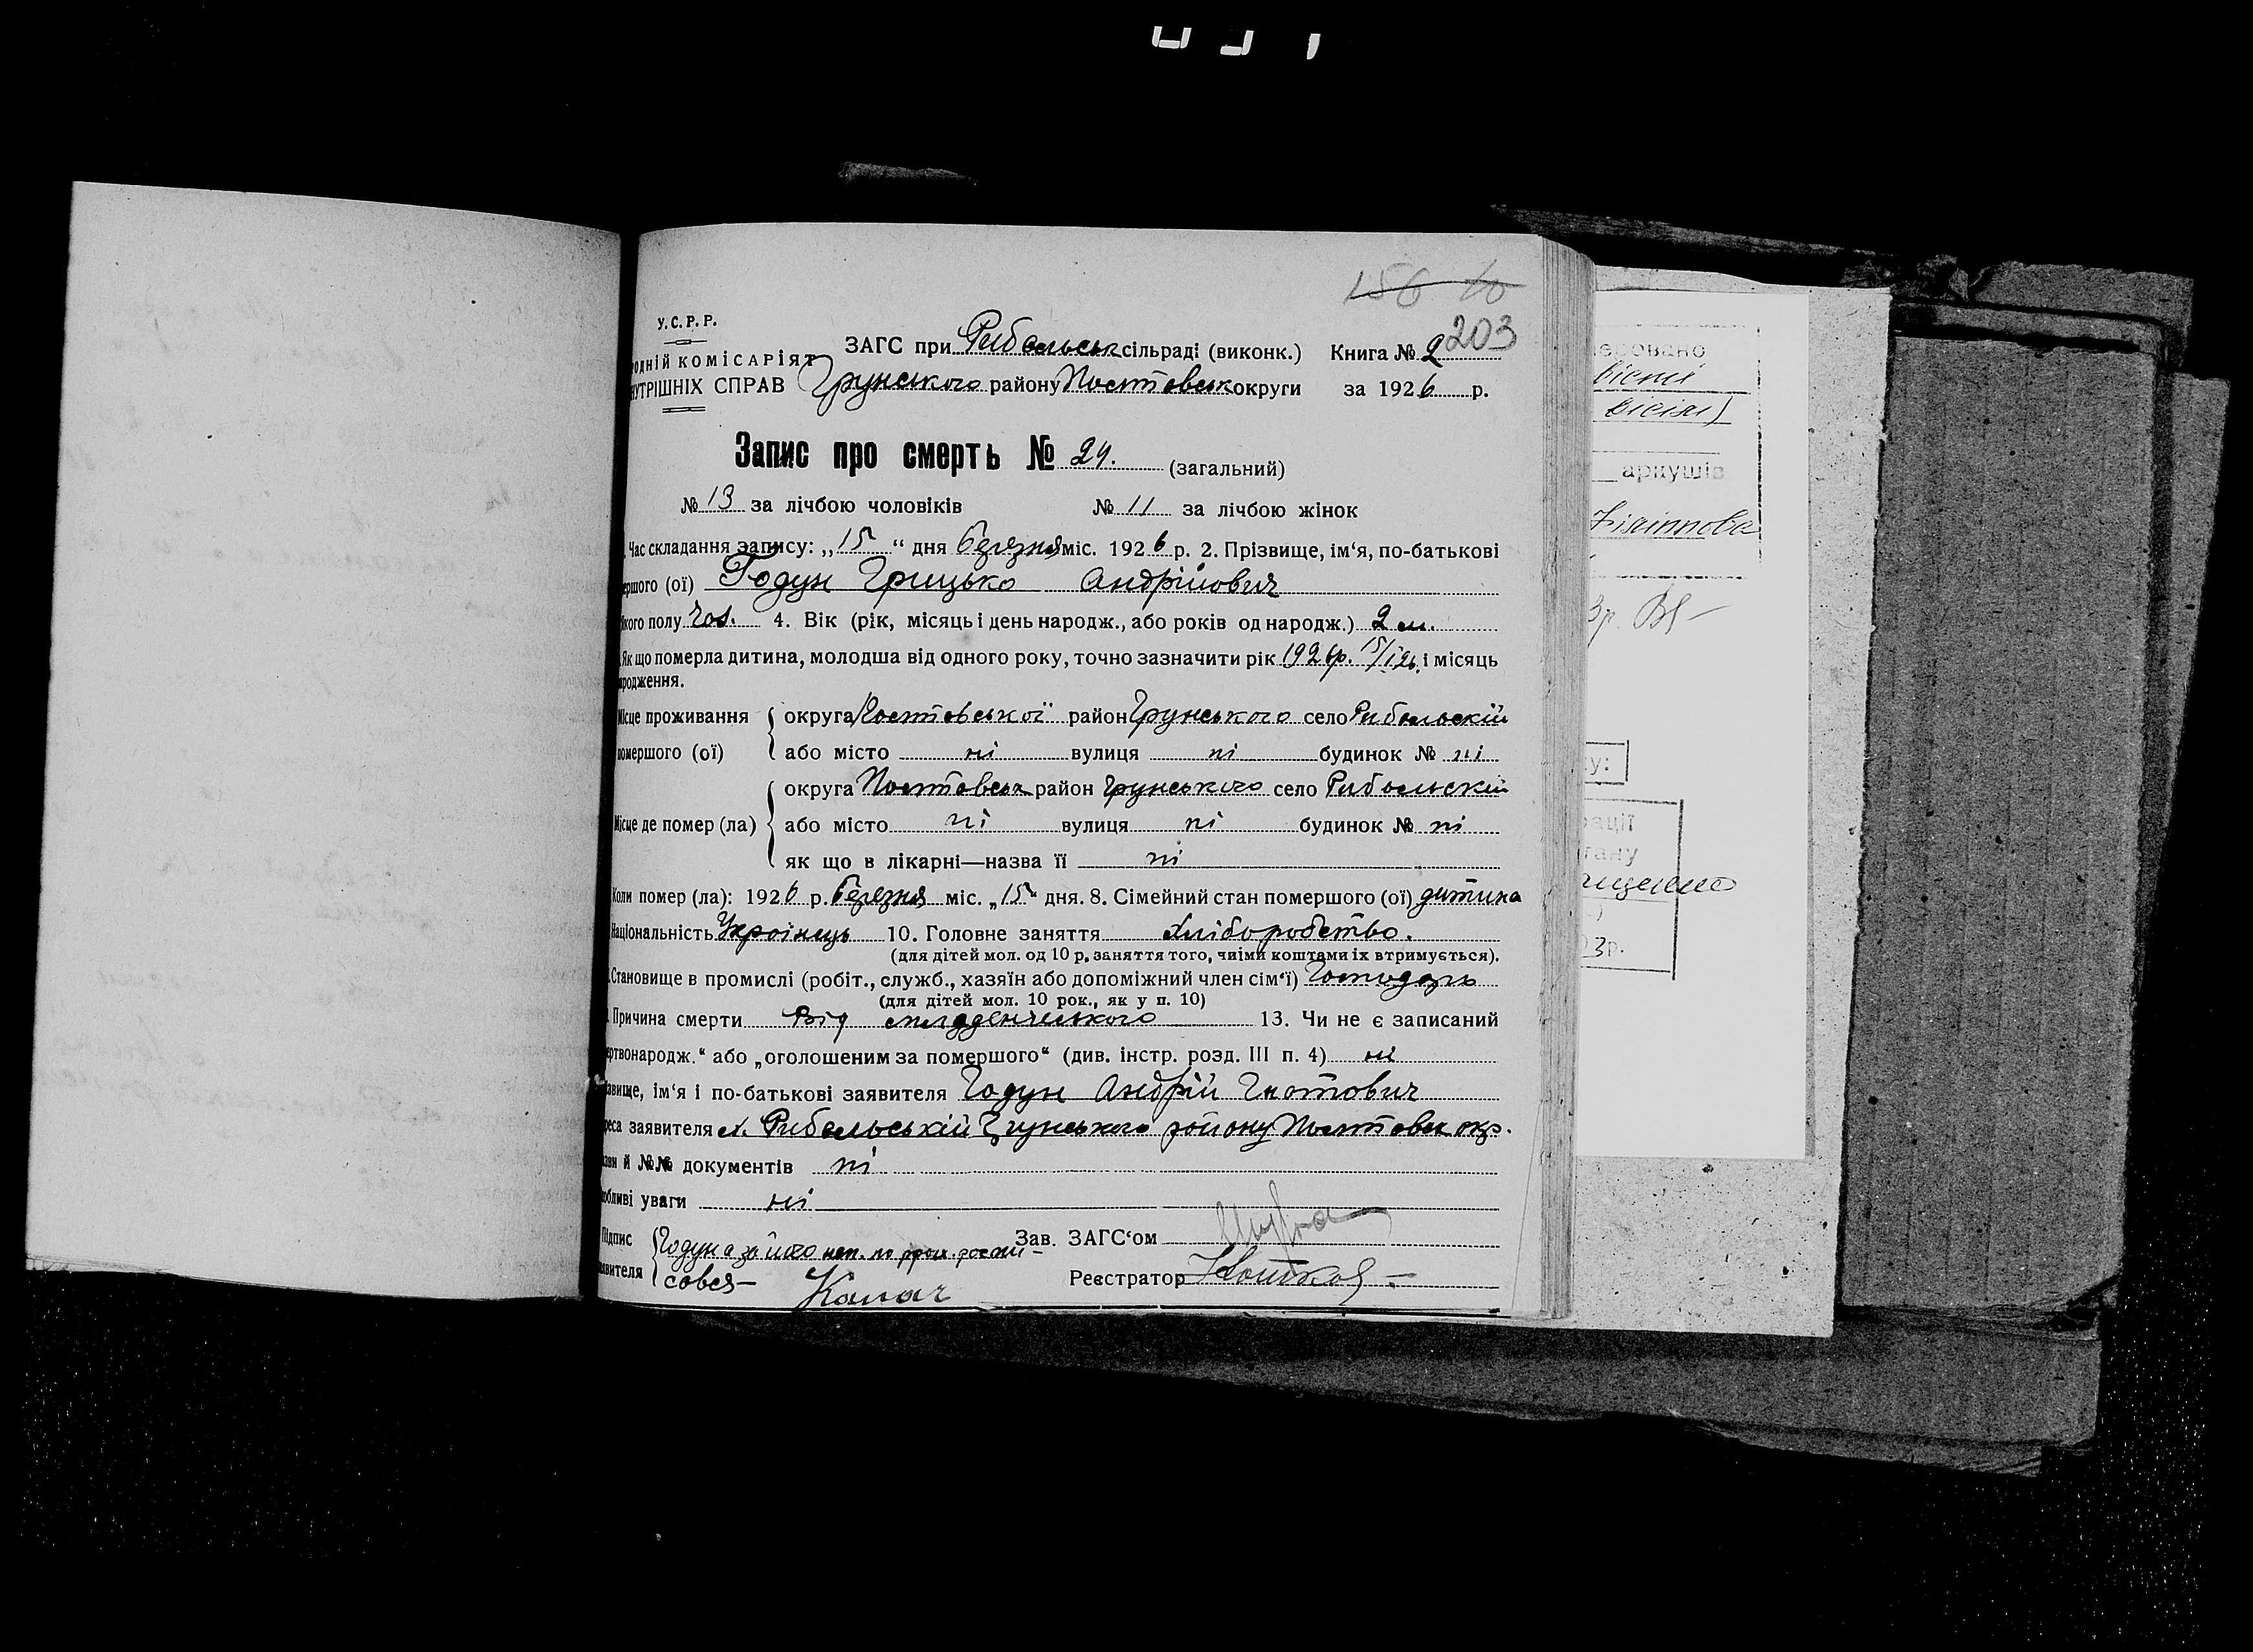 156 10
203
У.С.Р.Р.
ЗАГС при Рибальськ сільраді (виконк.) Книга № 2
одній КОМІСАРІЯТ
УТРІШНІХ СПРАВ Грунського району Полтавськ округи за 1926 р.
Запис про смерть № 24. (загальний)
№ 13 за лічбою чоловіків № 11 за лічбою жінок
Час складання запису: „15“ дня березня міс. 1926 р. 2. Прізвище, ім‘я, по-батькові
ершого (ої) Годун Грицько Андрійович
кого полу чол. 4. Вік (рік, місяць і день народж., або років од народж.) 2 м.
Як що померла дитина, молодша від одного року, точно зазначити рік 1926р. 15/I 26. і місяць
родження.
Місце проживання округа Полтавської район Грунського село Рибальскій
помершого (ої) або місто ні вулиця ні будинок № ні
округа Полтавськ район Грунського село Рибальскій
Місце де помер (ла) або місто ні вулиця ні будинок № ні
як що в лікарні—назва її ні
Коли помер (ла): 1926 р. березня міс. „15“ дня. 8. Сімейний стан помершого (ої) дитина
Національність Українець 10. Головне заняття хліборобство.
(для дітей мол. од 10 р, заняття того, чиїми коштами їх втримується).
Становище в промислі (робіт., служб., хазяїн або допоміжний член сім‘ї) Господарь
(для дітей мол. 10 рок., як у п. 10)
Причина смерти Від младенческого 13. Чи не є записаний
ертвонародж.“ або „оголошеним за помершого“ (див. інстр. розд. III п. 4) ні
звище, ім‘я і по-батькові заявителя Годун Андрій Гнатович
реса заявителя х. Рибальській Грунського району Полтавськ окр.
й №№ документів ні
обливі уваги ні
Підпис Годун а за його неп. по прох. роспи-
Зав. ЗАГС‘ом
явителя совся— Калач
Реєстратор
еровано
аркушів
у:
ації
тану
3р.